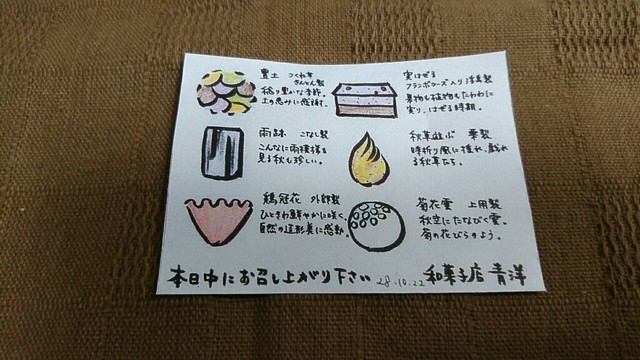 豊土 つくね芋
きんとん製
稔り豊かな季節。
土の恵みに感謝。
実はぜる
フランボワーズ入り浮島製
果物も植物もたわわに
実り、はぜる時期。
雨跡 こなし製
こんなに雨模様を
見る秋も珍しい。
秋草遊ぶ 葛製
時折り風に揺れ、戯れ
る秋草たち。
鶏冠花 外郎製
ひときわ鮮やかに咲く、
自然の造形美に感動。
菊花雲 上用製
秋空にたなびく雲。
菊の花びらのよう。
本日中にお召し上がり下さい 28.10.22 和菓子店 青洋